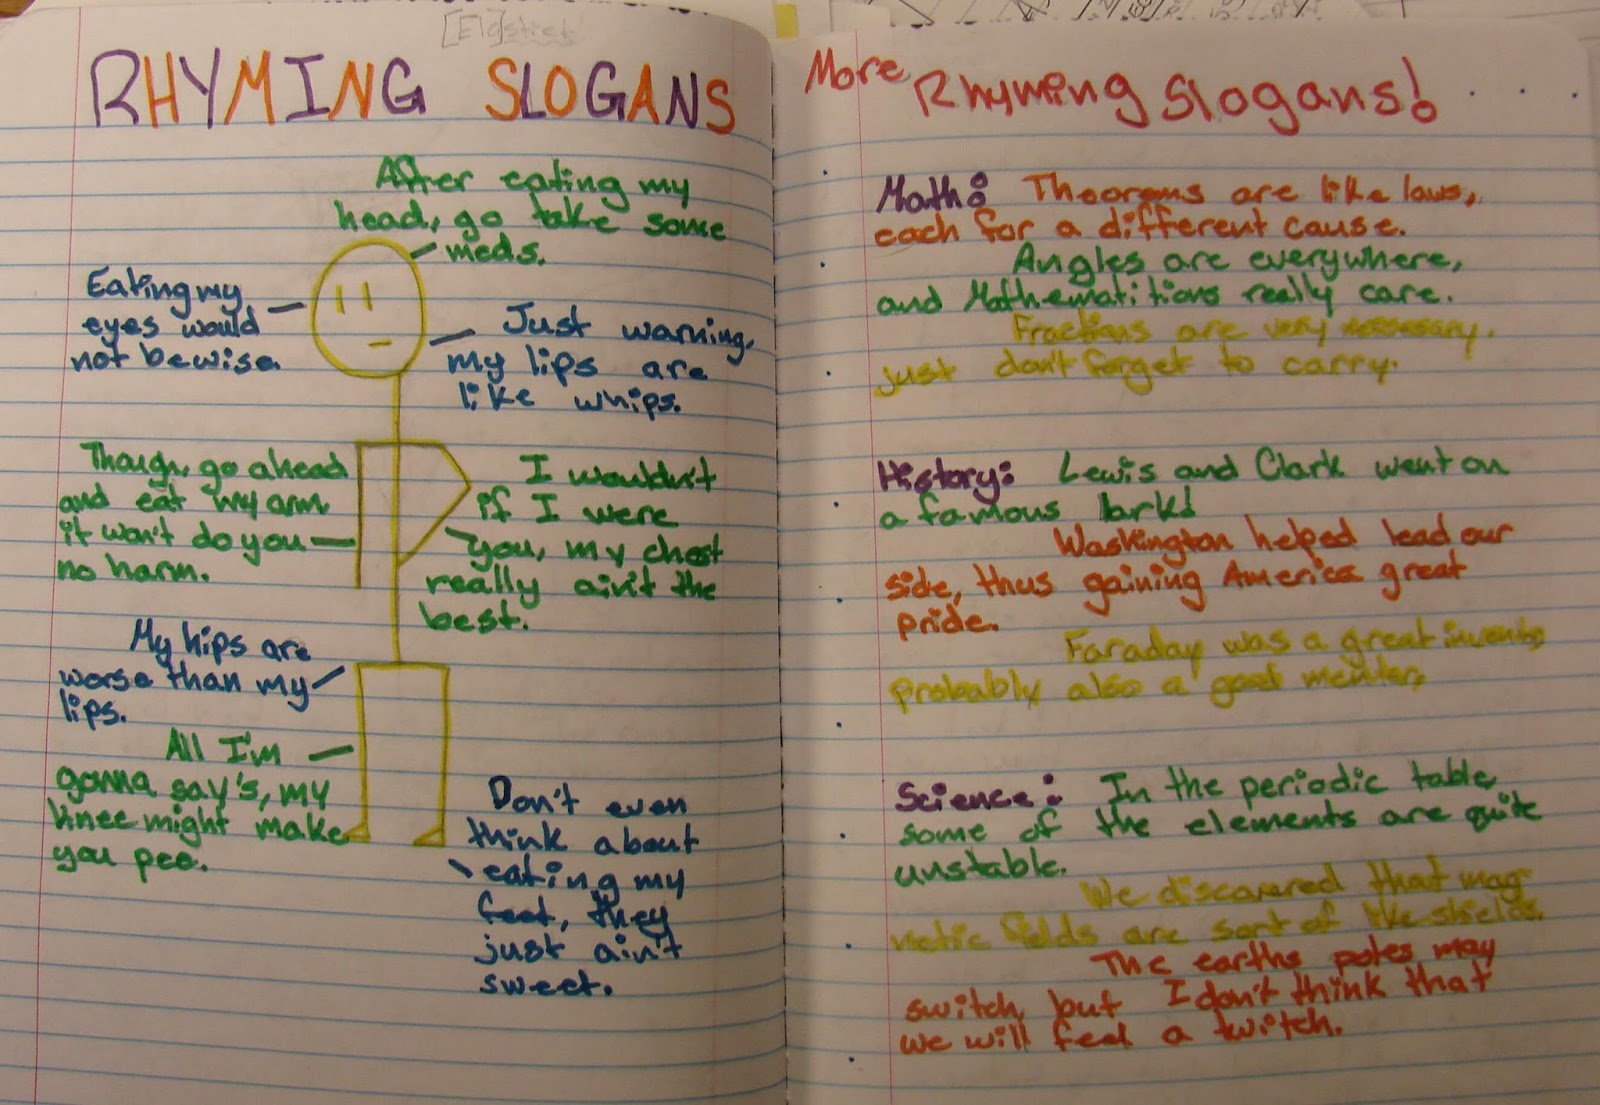 RHYMING SLOGANS
After eating my
head, go take some
meds.
Eating my
eyes would
not be wise.
Just warning,
my lips are
like whips.
Though, go ahead
and eat my arm
it won't do you
no harm.
I wouldn't
if I were
you, my chest
really ain't the
best.
My hips are
worse than my
lips.
All I'm
gonna say's, my
knee might make
you pee.
Don't even
think about
eating my
feet, they
just ain't
sweet.
More Rhyming Slogans!
Math: Theorems are like laws,
each for a different cause.
Angles are everywhere,
and Mathematitions really care.
Fractions are very nessesary,
just don't forget to carry.
History: Lewis and Clark went on
a famous lark!
Washington helped lead our
side, thus gaining America great
pride.
Faraday was a great inventor
probably also a good menter.
Science: In the periodic table,
some of the elements are quite
unstable.
We discovered that mag-
netic fields are sort of like shields.
The earths poles may
switch, but I don't think that
we will feel a twitch.